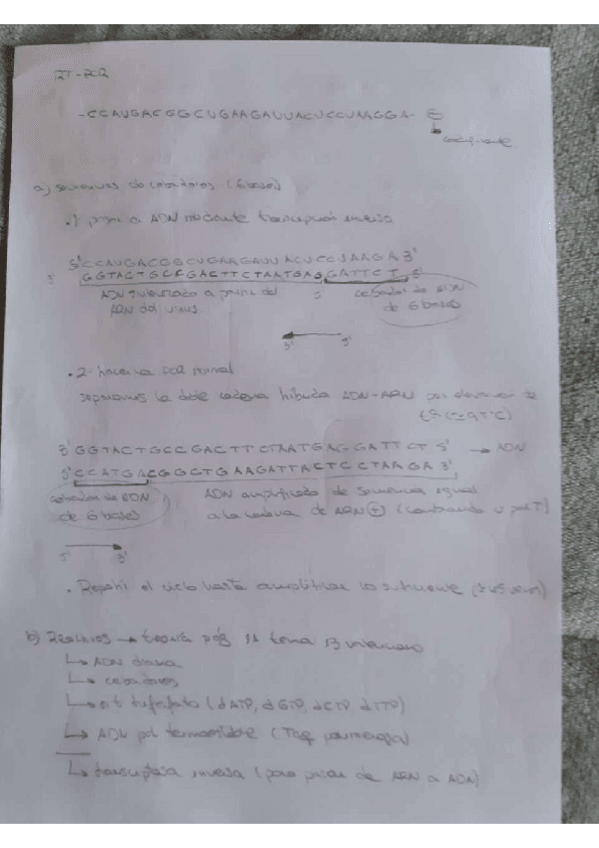 RT-PCR
-CCAUGACGGCUGAAGAUUACUCCUAAGGA- ⊕
a) secuencias de cebadores (6 bases)
.1 pasar a ADN mediante transcripción inversa
5'CCAUGACGGCUGAAGAUUACUCCUAAGA 3'
3' GGTACTGCCGACTTCTAATGAGGATTCT 5'
ADN sintetizado a partir del 5' cebador de ADN
ARN del virus de 6 bases
3' 5'
• 2- hacer una PCR normal
separamos la doble cadena híbrida ADN-ARN por elevación de
tª (≈95ºC)
3' GGTACTGCCGACTTCTAATGAGGATTCT 5' → ADN
5'CCATGACGGCTGAAGATTACTCCTAAGA 3'
cebador de ADN ADN amplificado de secuencia igual
de 6 bases a la cadena de ARN ⊕ (cambiando U por T)
5' 3'
• Repetir el ciclo hasta amplificar lo suficiente
b) Reactivos → teoría pág 11 tema 13
↳ ADN diana
↳ cebadores
↳ nt trifosfato (dATP, dGTP, dCTP, dTTP)
↳ ADN pol termoestable (Taq polimerasa)
↳ transcriptasa inversa (para pasar de ARN a ADN)